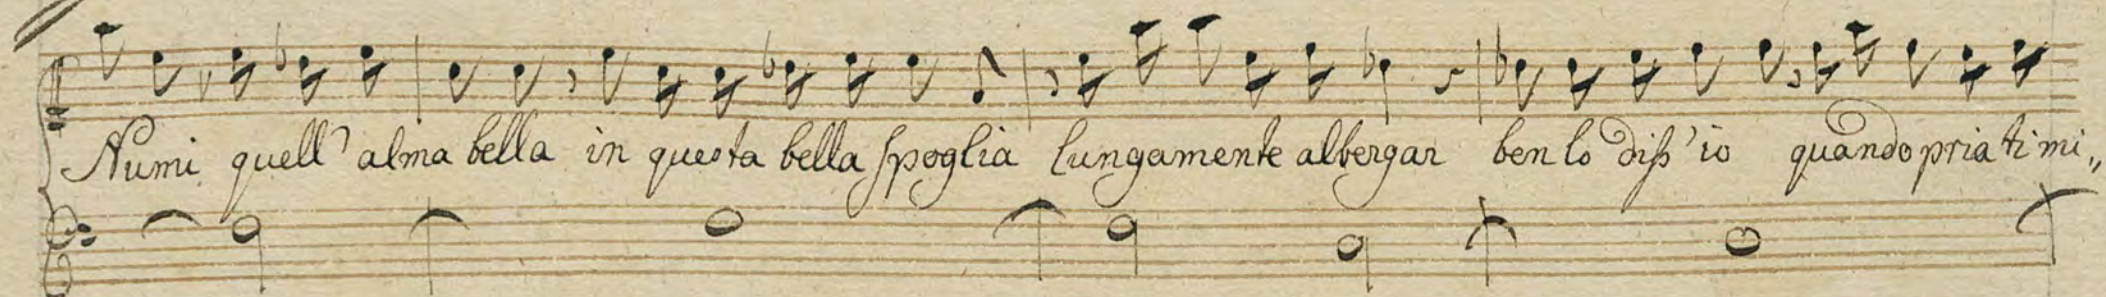 Numi quell' alma bella in questa bella spoglia lungamente albergar ben lo diss' io quando pria ti mi„